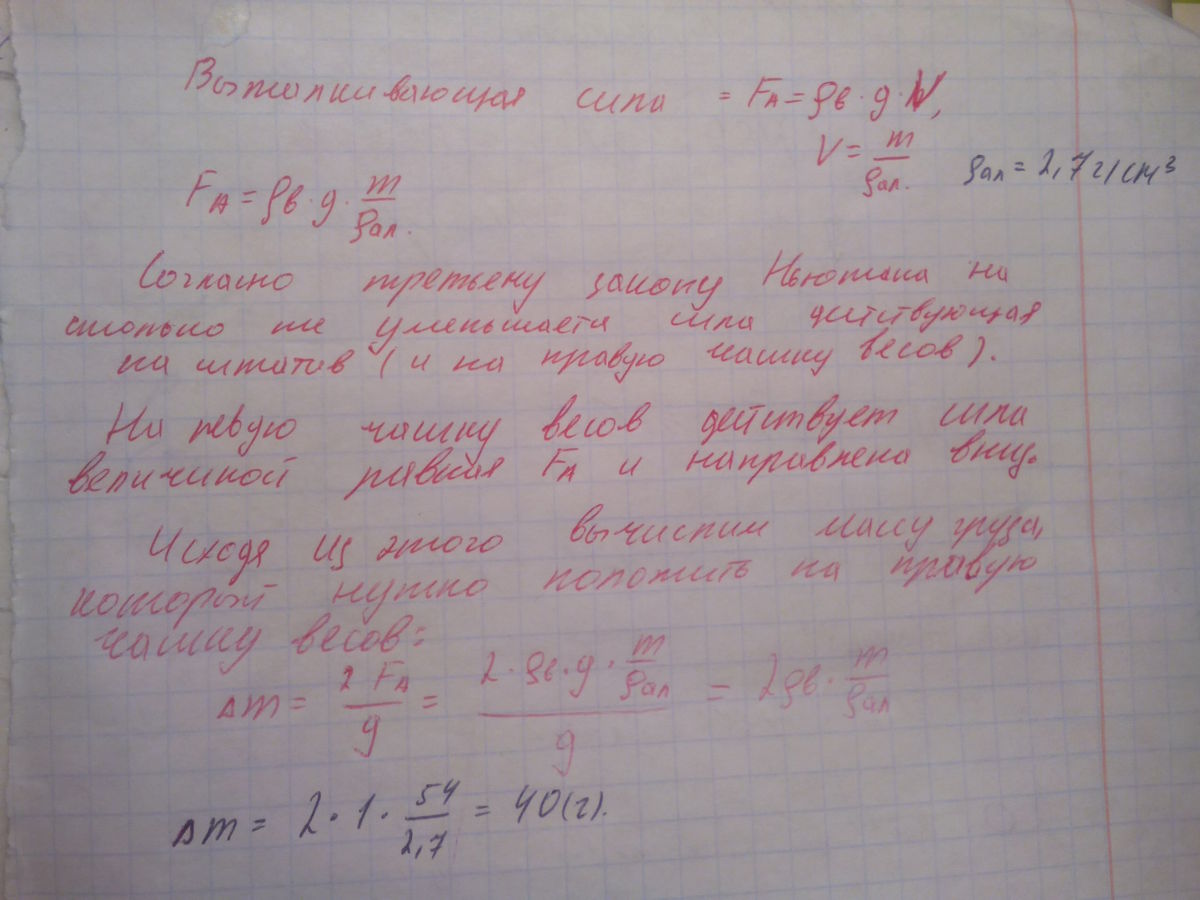 Выталкивающая сила = FА = ρв · g · V,
V = m/ρал. ρал = 2,7 г/см³
FА = ρв · g · m/ρал.
Согласно третьему закону Ньютона на
столько же уменьшается сила действующая
на штатив (и на правую чашку весов).
На левую чашку весов действует сила
величиной равная FА и направлена вниз.
Исходя из этого вычислим массу груза,
который нужно положить на правую
чашку весов:
Δm = 2 FА/g = (2 · ρв · g · m/ρал)/g = 2ρв · m/ρал
Δm = 2 · 1 · 54/2,7 = 40(г).